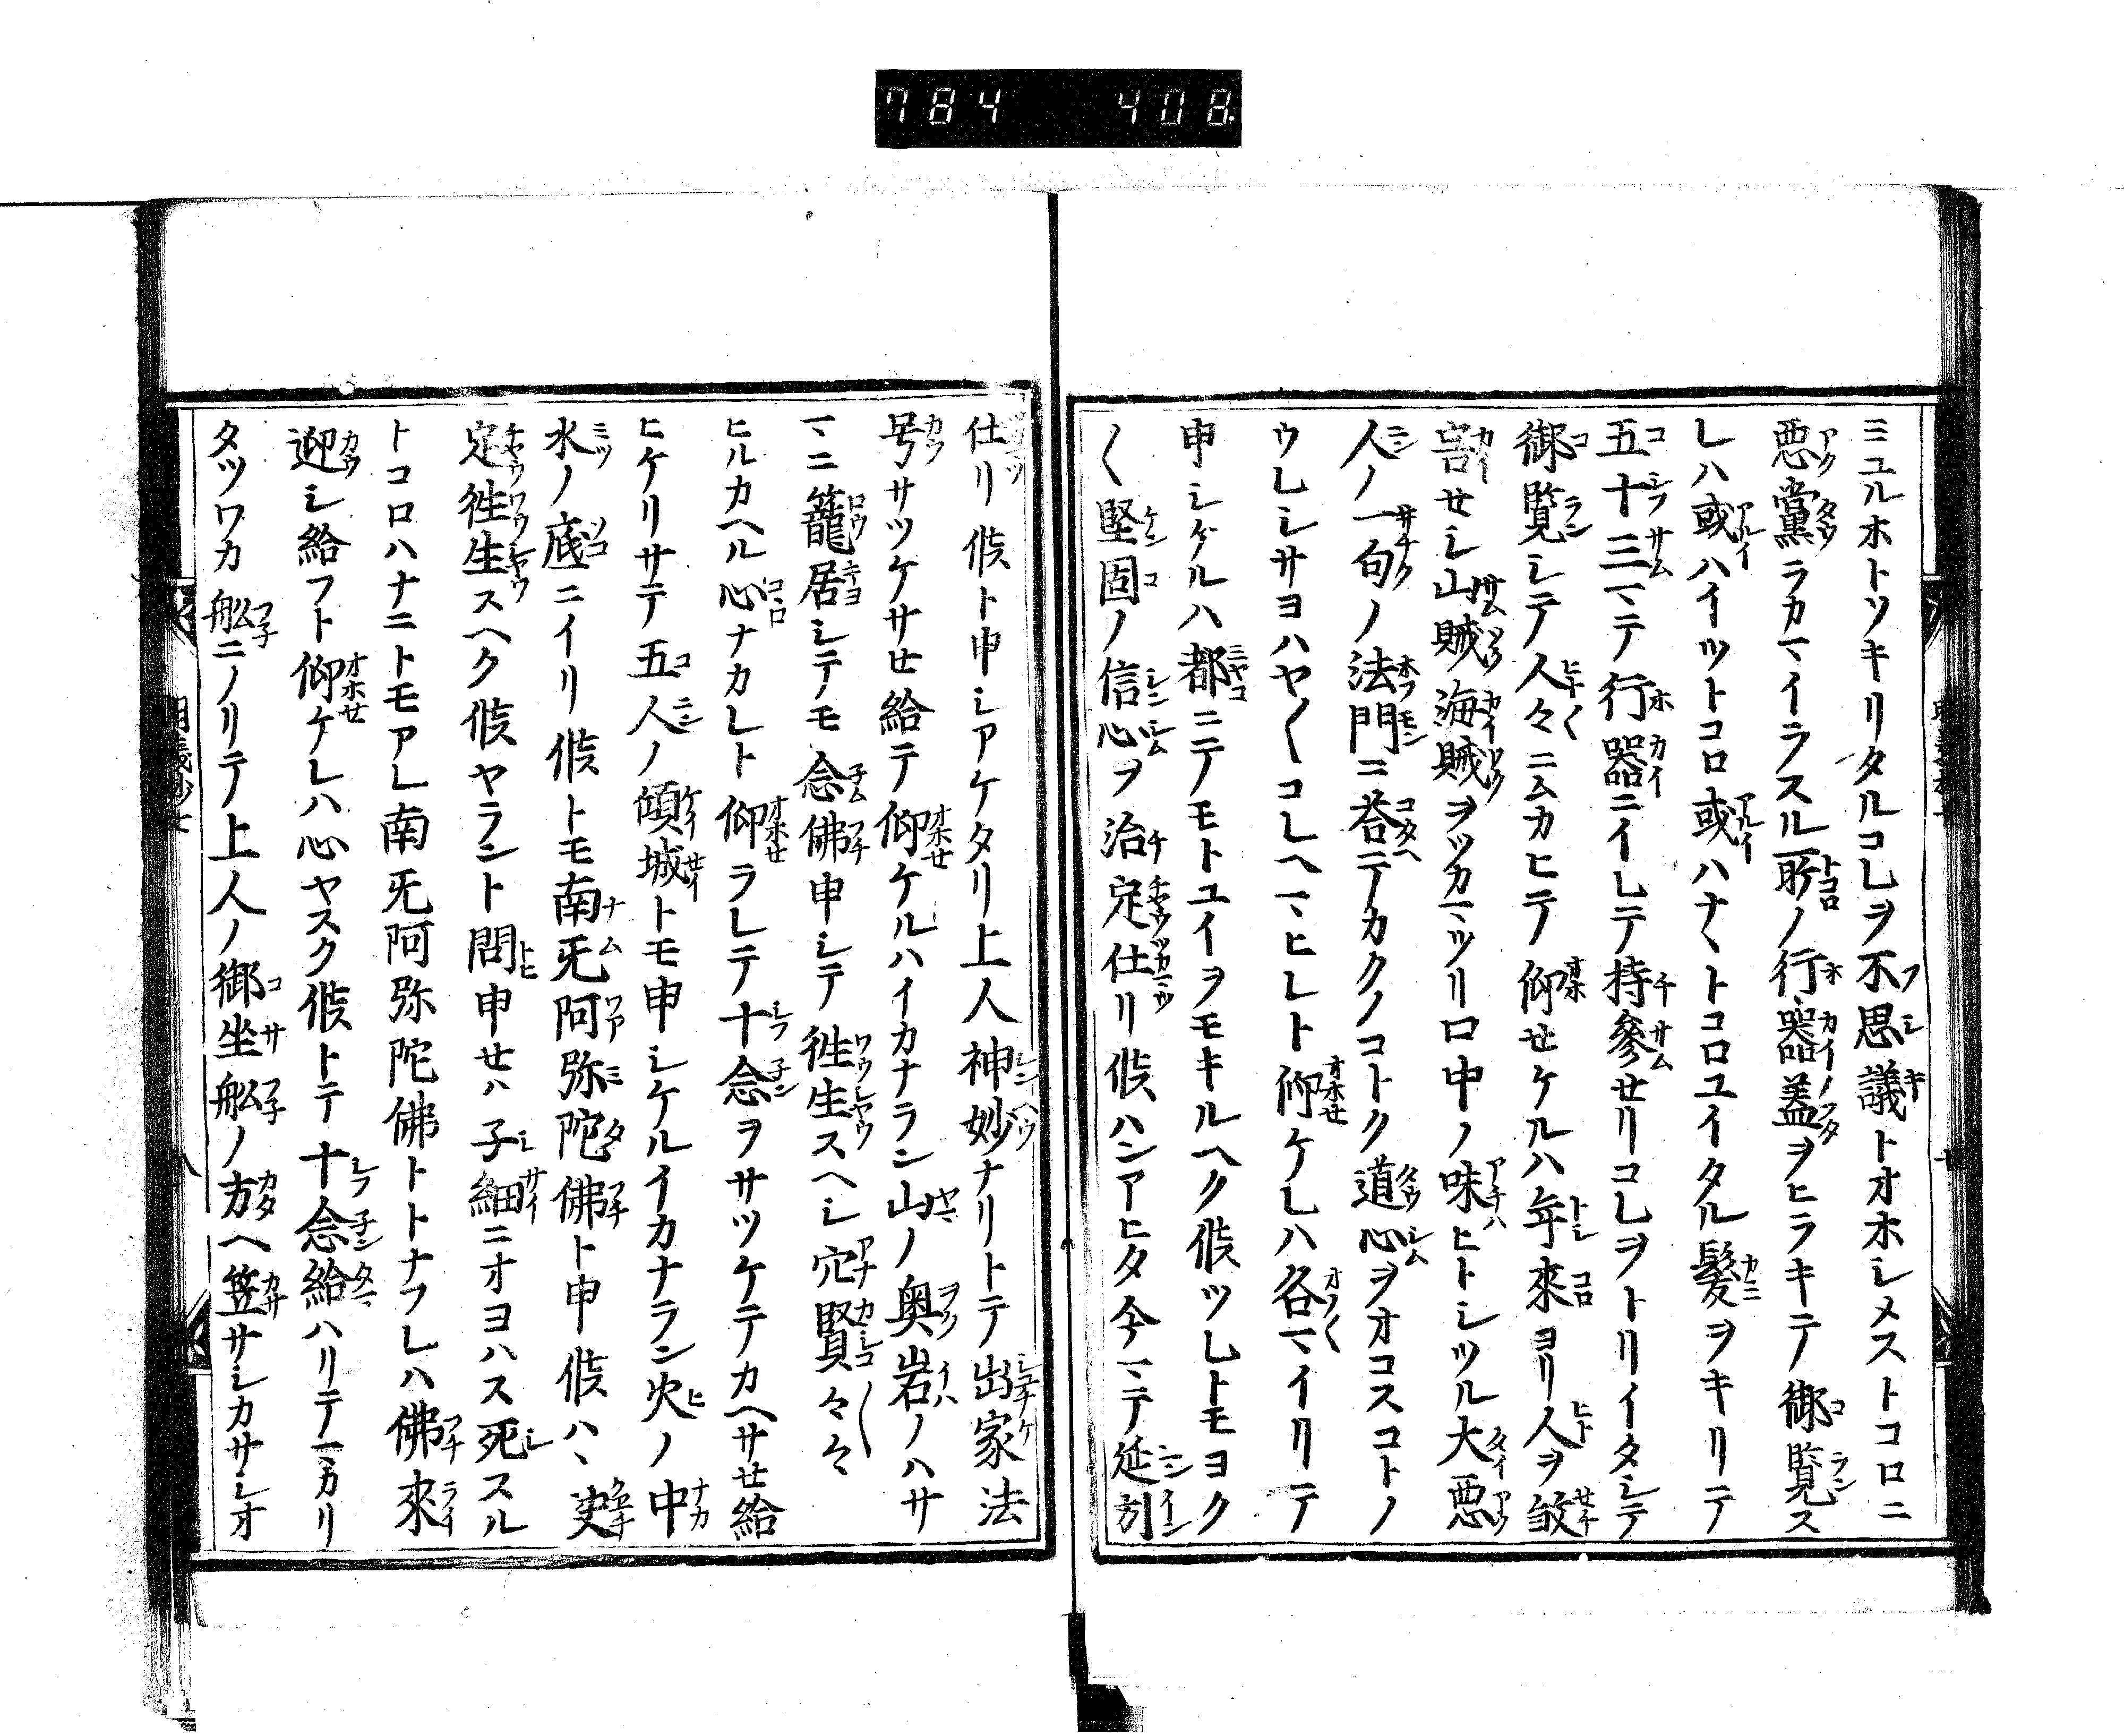 784 408
ミユルホトツキリタルコレヲ不思議トオホシメストコロニ
悪黨ラカマイラスル所ノ行器蓋ヲヒラキテ御覧ス
レハ或ハイツトコロ或ハナヽトコロユイタル髪ヲキリテ
五十三マテ行器ニイレテ持參セリコレヲトリイタシテ
御覧シテ人々ニムカヒテ仰セケルハ年來ヨリ人ヲ殺
害セシ山賊海賊ヲツカマツリ口中ノ味ヒトシツル大悪
人ノ一句ノ法門ニ荅テカクノコトク道心ヲオコスコトノ
ウレシサヨハヤ〱コレヘマヒレト仰ケレハ各マイリテ
申シケルハ都ニテノモトユイヲモキルヘク候ツレトモヨク
〱堅固ノ信心ヲ治定仕リ候ハンアヒタ今マテ延引
仕リ候ト申シアケタリ上人神妙ナリトテ出家法
号サツケサせ給テ仰ケルハイカナラン山ノ奥岩ノハサ
マニ籠居シテノモ念佛申シテ徃生スヘシ穴賢々々
ヒルカヘル心ナカレト仰ラレテ十念ヲサツケテカヘサせ給
ヒケリサテ五人ノ傾城トモ申シケルイカナラン火ノ中
水ノ底ニイリ候トモ南旡阿弥陀佛ト申候ハヽ决
定徃生スヘク候ヤラント問申せハ子細ニオヨハス死スル
トコロハナニトモアレ南旡阿弥陀佛トトナフレハ佛來
迎シ給フト仰ケレハ心ヤスク候トテ十念給ハリテマカリ
タツワカ舩ニノリテ上人ノ御坐舩ノ方ヘ笠サシカサシオ